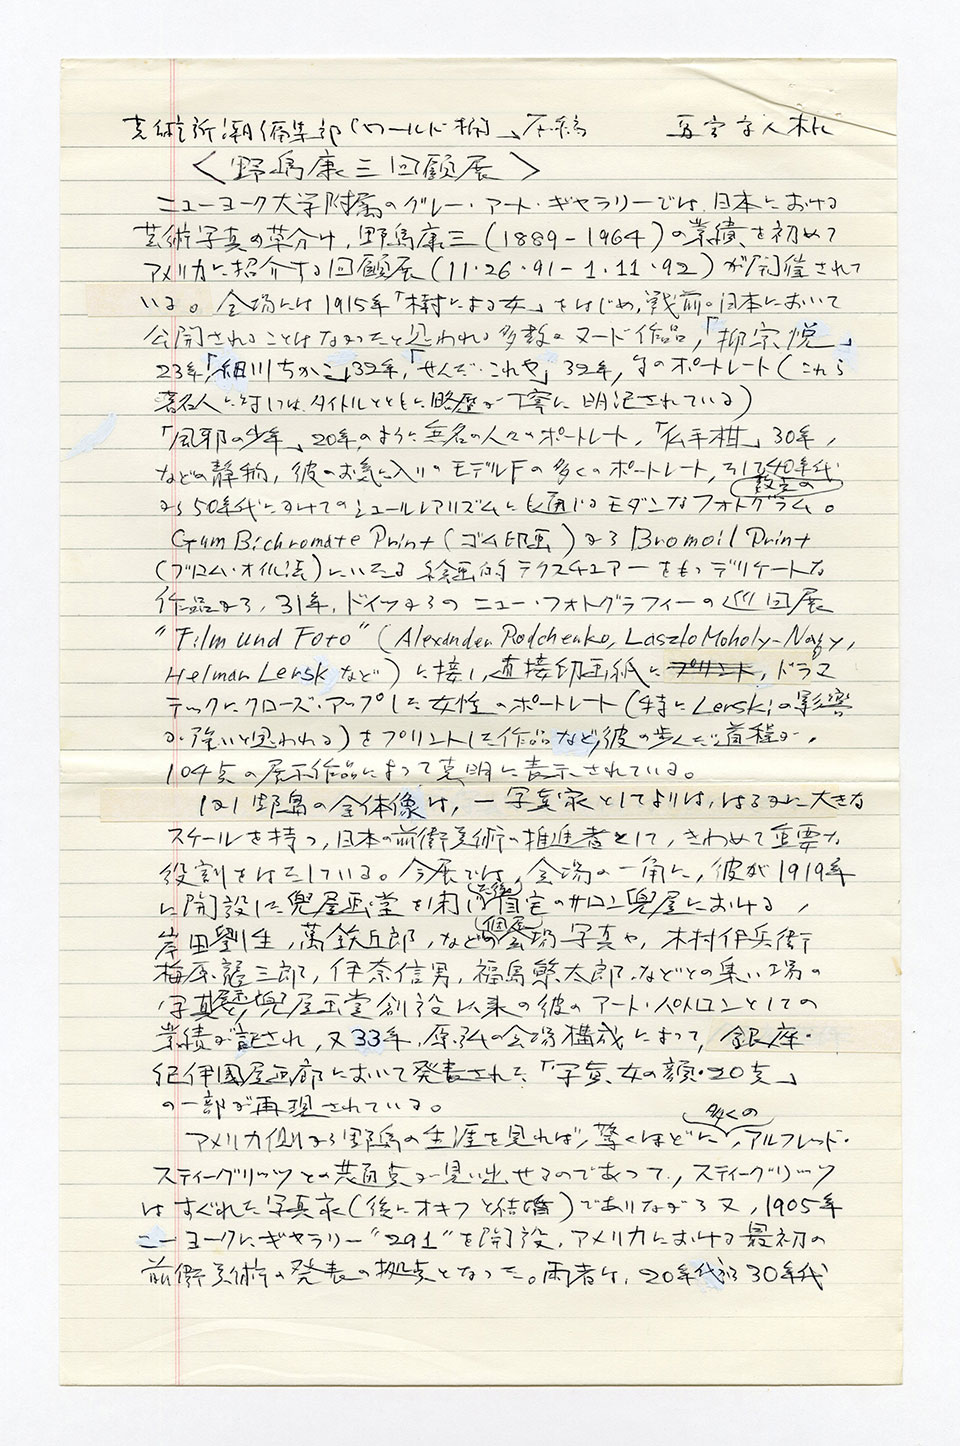 芸術新潮編集部「ワールド欄」原稿
〈野島康三回顧展〉
ニューヨーク大学附属のグレー・アート・ギャラリーでは、日本における
芸術写真の草分け、野島康三(1889-1964)の業績を初めて
アメリカに紹介する回顧展(11・26・91-1・11・92)が開催されて
いる。会場には1915年「樹による女」をはじめ、戦前の日本において
公開されることはなかったと思われる多数のヌード作品,「柳宗悦」
23年「細川ちか子」32年,「せんだ・これや」32年, 等のポートレート(これら
著名人に対しては、タイトルとともに略歴が丁寧に明記されている)
「風邪の少年」20年のように無名の人々のポートレート,「仏手柑」30年,
などの静物, 彼のお気に入りのモデルFの多くのポートレート, そして40年代
から50年代にかけてのシュールレアリズムにも通じる数点のモダンなフォトグラム。
Gum Bichromate Print(ゴム印画)から Bromoil Print
(ブロム・オイル法)にいたる絵画的テクスチュアーをもつデリケートな
作品から, 31年, ドイツからのニュー・フォトグラフィーの巡回展
"Film und Foto"(Alexander Rodchenko, Laszlo Moholy-Nagy,
Helmar Lersk など)に接し, 直接印画紙に プリント, ドラマ
テックにクローズ・アップした女性のポートレート(特にLerskiの影響
が強いと思われる)をプリントした作品など, 彼の歩んだ道程が,
104点の展示作品によって克明に表示されている。
しかし野島の全体像は, 一写真家としてよりは, はるかに大きな
スケールを持つ, 日本の前衛美術の推進者として, きわめて重要な
役割をはたしている。今展では, 会場の一角に, 彼が1919年
に開設した兜屋画堂を閉じた後自宅のサロン兜屋における,
岸田劉生, 萬鉄五郎, などの個展会場写真や, 木村伊兵衛
梅原龍三郎, 伊奈信男, 福島繁太郎, などとの集い場の
写真と, 兜屋画堂創設以来の彼のアート・パトロンとしての
業績が証され, 又33年, 原弘の会場構成によって, 銀座・
紀伊國屋画廊において発表された「写真、女の顔・20点」
の一部が再現されている。
アメリカ側から野島の生涯を見れば, 驚くほどに多くの, アルフレッド・
スティーグリッツとの共通点が見い出せるのであって, スティーグリッツ
はすぐれた写真家(後にオキフと結婚)でありながら又, 1905年
ニーヨークにギャラリー"291"を開設, アメリカにおける最初の
前衛美術の発表の拠点となった。両者は, 20年代から30年代